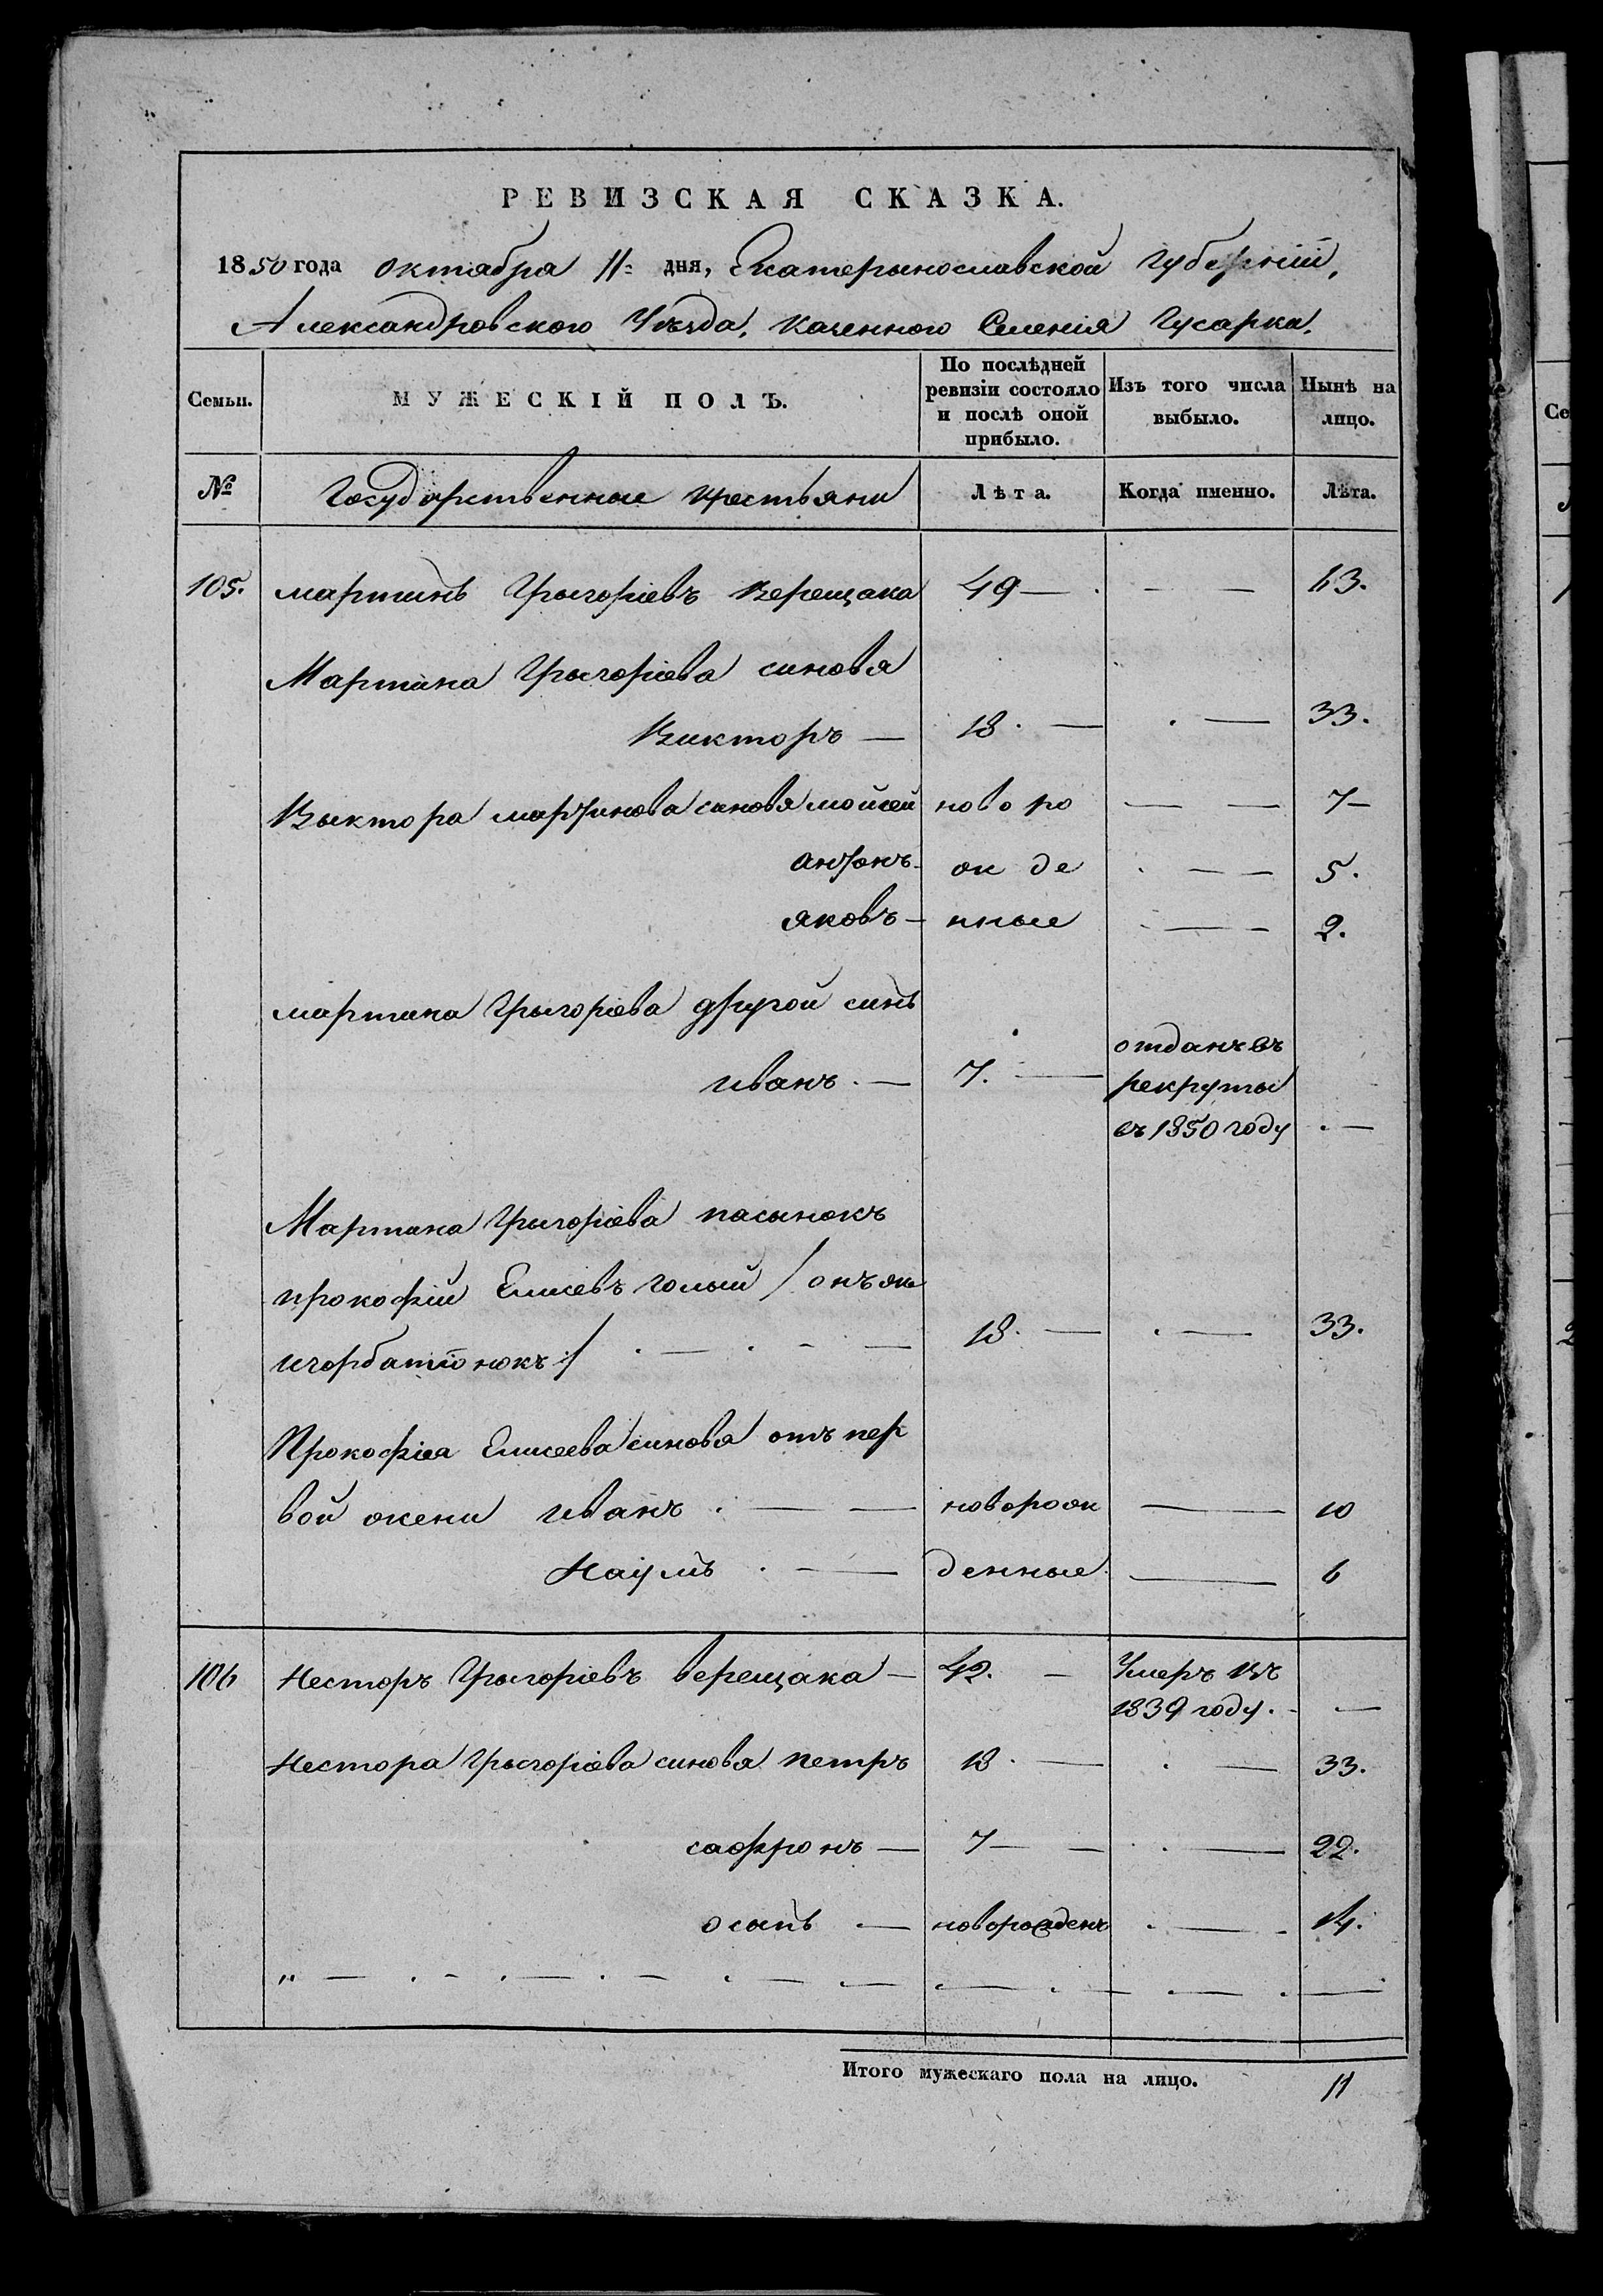 РЕВИЗСКАЯ СКАЗКА.
1850 года октабра 11 = дня, Екатерынославской Губерніи,
Александровского Уѣзда, Казенного Селенія Гусарка.
Семьи.
МУЖЕСКІЙ ПОЛЪ.
По послѣдней ревизіи состояло и послѣ оной прибыло.
Изъ того числа выбыло.
Нынѣ на лицо.
№
Государственные крестьяни
Лѣта.
Когда именно.
Лѣта.
105. мартинъ Грыгоріевъ Верещака 49 — . - — 63.
Мартина Грыгоріева синовя
Викторъ — 18. — . — 33.
Выктора мартинова синовя мойсей ново ро — — 7 —
антонъ - ж де . — — 5.
яковъ — нные . — - 2.
мартина Грыгоріева другой синъ
иванъ . — 7. — отданъ въ
рекруты
въ 1850 году . —
Мартина Грыгоріева пасынокъ
прокофій Елисеевъ голый / онъ же
/ . — . - — 18. — . — 33.
Прокофіея Елисеева синовя отъ пер
вой жени иванъ . — — новорож — 10
Наумъ . - — денные — 6
106 Несторъ Грыгоріевъ верещака — 42. — Умеръ въ
1839 году . - —
Нестора Грыгоріева синовя петръ 18. — . — 33.
сафронъ — 7 — — . — 22.
осапъ — новорожденъ . — - 14.
„ — . - . — . — . — . — . — . — . — . —
Итого мужескаго пола на лицо. 11
Се